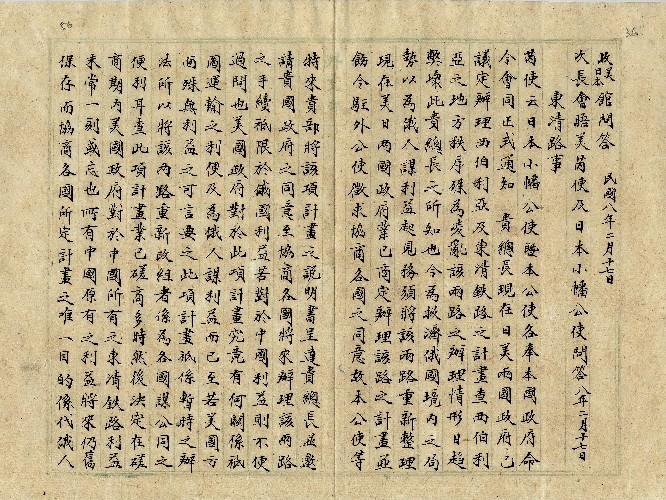 36
政美日本館問答 民國八年二月十七日
次長會晤美芮使及日本小幡公使問答 八年二月十七日
東清路事
芮使云日本小幡公使暨本公使各奉本國政府命
令會同正式通知 貴總長現在日美兩國政府已
議定辦理西伯利亞及東清鐵路之計畫查西伯利
亞之地方秩序殊為凌亂該兩路之辦理情形日趨
弊壞此貴總長之所知也今為救濟俄國境內之局
勢以為俄人謀利益起見務須將該兩路重新整理
現在美日兩國政府業已商定辦理該路之計畫並
飭令駐外公使徵求協商各國之同意故本公使等
56
特來貴部將該項計畫之說明書呈達貴總長並懇
請貴國政府之同意至協商各國將來辦理該兩路
之手續祗限於俄國利益若對於中國利益則不便
過問也美國政府對於此項計畫究竟有何關係祗
圖運輸之利便及為俄人謀利益而已至若美國方
面殊無利益之可言要之此項計畫祗係暫時之辦
法所以將該兩路重新改組者係為各國謀公同之
便利耳查此項計畫業已磋商多時然後決定在磋
商期內美國政府對於中國所有之東清鐵路利益
未常一刻或忘也所有中國原有之利益將來仍舊
保存而協商各國所定計畫之唯一目的係代俄人